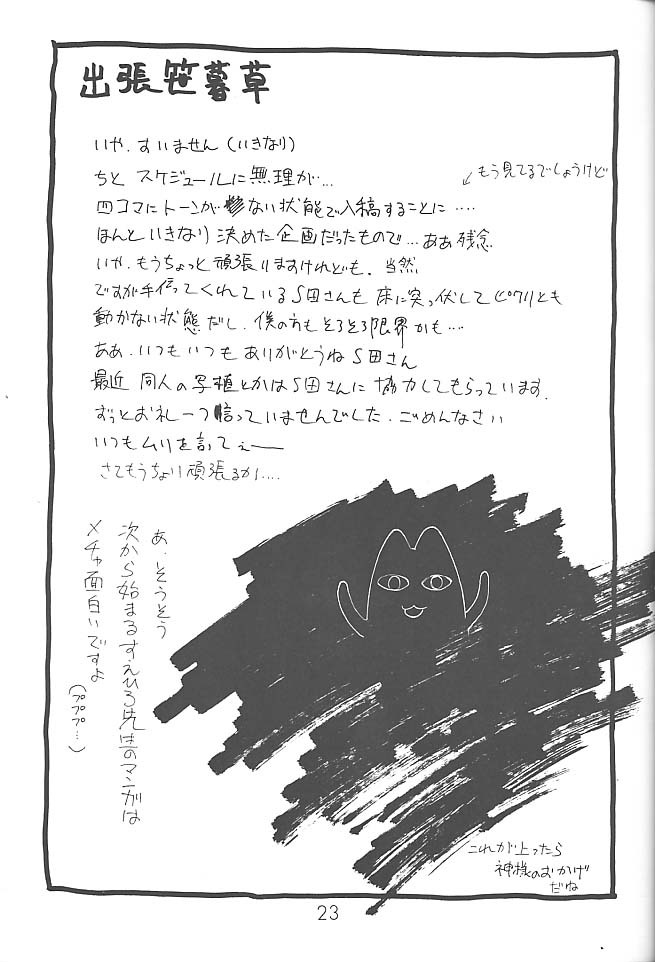 出張笹暮草
いや、すいません（いきなり）
ちと スケジュールに無理が…
↙もう見てるでしょうけど
四コマにトーンが ない状態で入稿することに‥‥
ほんといきなり決めた企画だったもので…ああ残念
いや、もうちょっと頑張りますけれども、当然
ですが手伝ってくれているS田さんも 床に突っ伏してピクリとも
動かない状態だし、僕の方もそろそろ限界かも…
ああ、いつもいつも ありがとうねS田さん
最近 同人の写植とかはS田さんに 協力してもらっています.
ずっとお礼一つ言っていませんでした、ごめんなさい
いつもムリを言ってぇー
さてもうちょい頑張るか‥‥
あ、そうそう
次から始まるすえひろ先生のマンガは
メチャ面白いですよ
（ププププ…）
これが上ったら
神様のおかげ
だね
23